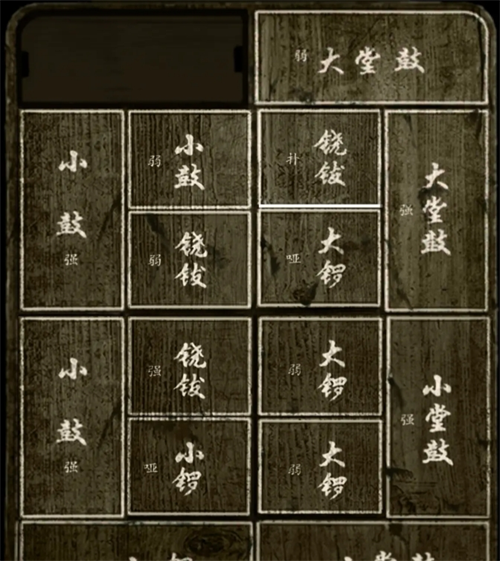 弱 大堂鼓
小鼓 强
弱 小鼓
补 铙钹
强 大堂鼓
弱 铙钹
哑 大锣
小鼓 强
强 铙钹
弱 大锣
强 小堂鼓
哑 小锣
弱 大锣